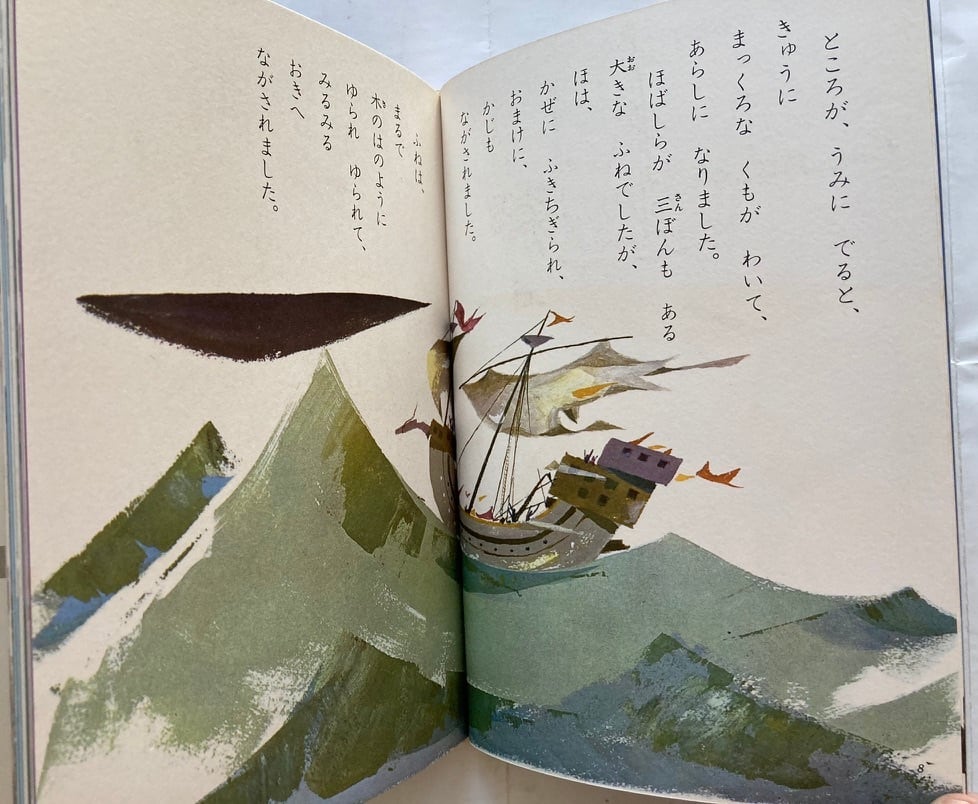 ところが、うみに でると、
きゅうに
まっくろな くもが わいて、
あらしに なりました。
ほばしらが 三ぼんも ある
大きな ふねでしたが、
ほは、
かぜに ふきちぎられ、
おまけに、
かじも
ながされました。
ふねは、
まるで
木のはのように
ゆられ ゆられて、
みるみる
おきへ
ながされました。
8